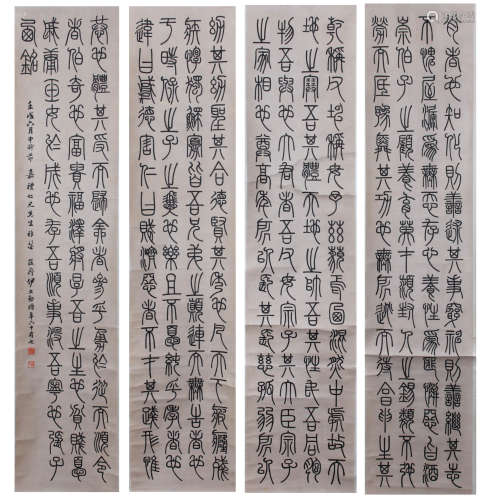 乾稱父坤稱母予茲藐焉乃混然中處故天
地之塞吾其體天地之帥吾其性民吾同胞
物吾與也大君者吾父母宗子其大臣宗子
之家相也尊高年所以長其長慈孤弱所以
幼其幼聖其合德賢其秀也凡天下疲癃殘
疾惸獨鰥寡皆吾兄弟之顛連而無告者也
于時保之子之翼也樂且不憂純乎孝者也
違曰悖德害仁曰賊濟惡者不才其踐形惟
肖者也知化則善述其事窮神則善繼其志
不愧屋漏為無忝存心養性為匪懈惡旨酒
崇伯子之顧養育英才潁封人之錫類不弛
勞而厎豫舜其功也無所逃而待烹申生其
恭也體其受而歸全者參乎勇於從而順令
者伯奇也富貴福澤將厚吾之生也貧賤憂
戚庸玉女於成也存吾順事沒吾寧也張子
西銘
壬戌六月中 節 嘉禮仁兄先生雅鑒 伊立勳時年六十有七